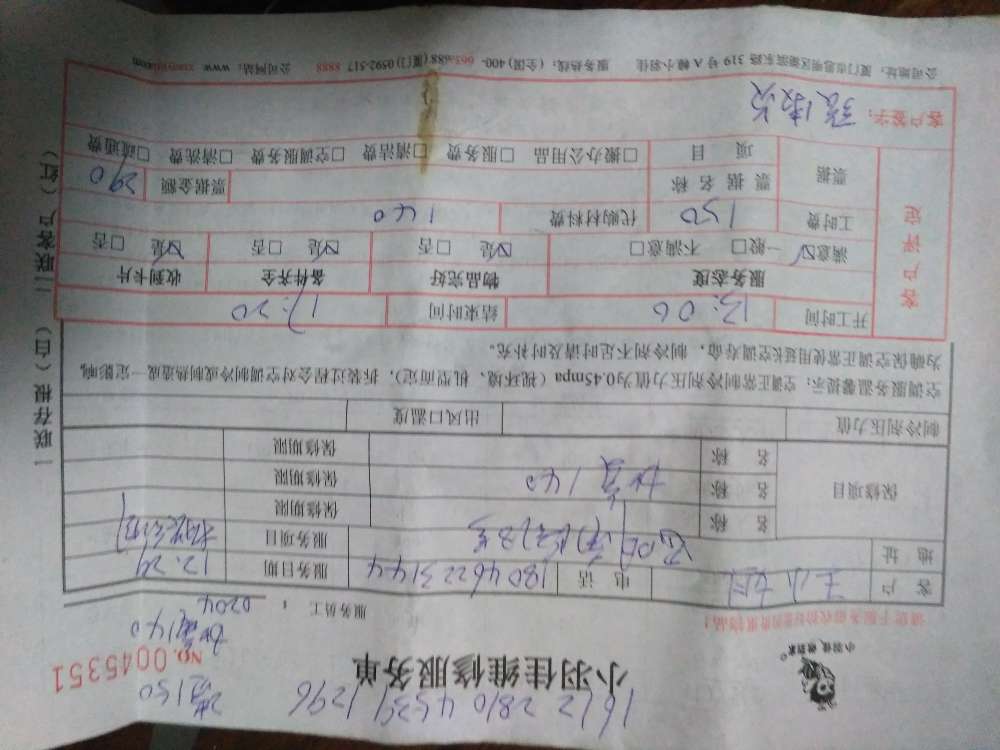 1612 2810 4539 1296
清150
小羽佳维修服务单
NO. 0045351
加氟140
小羽佳, 做到家
服务员工：
0204
客 户 电 话 18046223144 服务日期 12.29
地 址 服务项目
保修项目 名 称 保修期限
名 称 加氟140 保修期限
名 称 保修期限
制冷剂压力值 出风口温度
空调服务温馨提示：空调正常制冷剂压力值为0.45mpa（视环境、机型而定），拆装过程会对空调制冷或制热造成一定影响，
为确保空调正常使用延长空调寿命，制冷剂不足时请及时补充。
客户评定
开工时间 13:06 结束时间 17:20
服务态度 物品完好 备件齐全 收到卡片
满意☑ 一般□ 不满意□ ☑是 □否 ☑是 □否 ☑是 □否
工时费 150 代购材料费 140
票据 票 据 名 称 票据金额 290
项 目 □搬办公用品 □服务费 □清洁费 □空调服务费 □清洗费 □疏通费
客户签字：
公司地址：厦门市思明区湖滨东路 319 号 A 幢小羽佳 服务热线：(全国) 400- (厦门) 0592-517 8888 公司网站：www
一联存根（白） 二联客户（红）